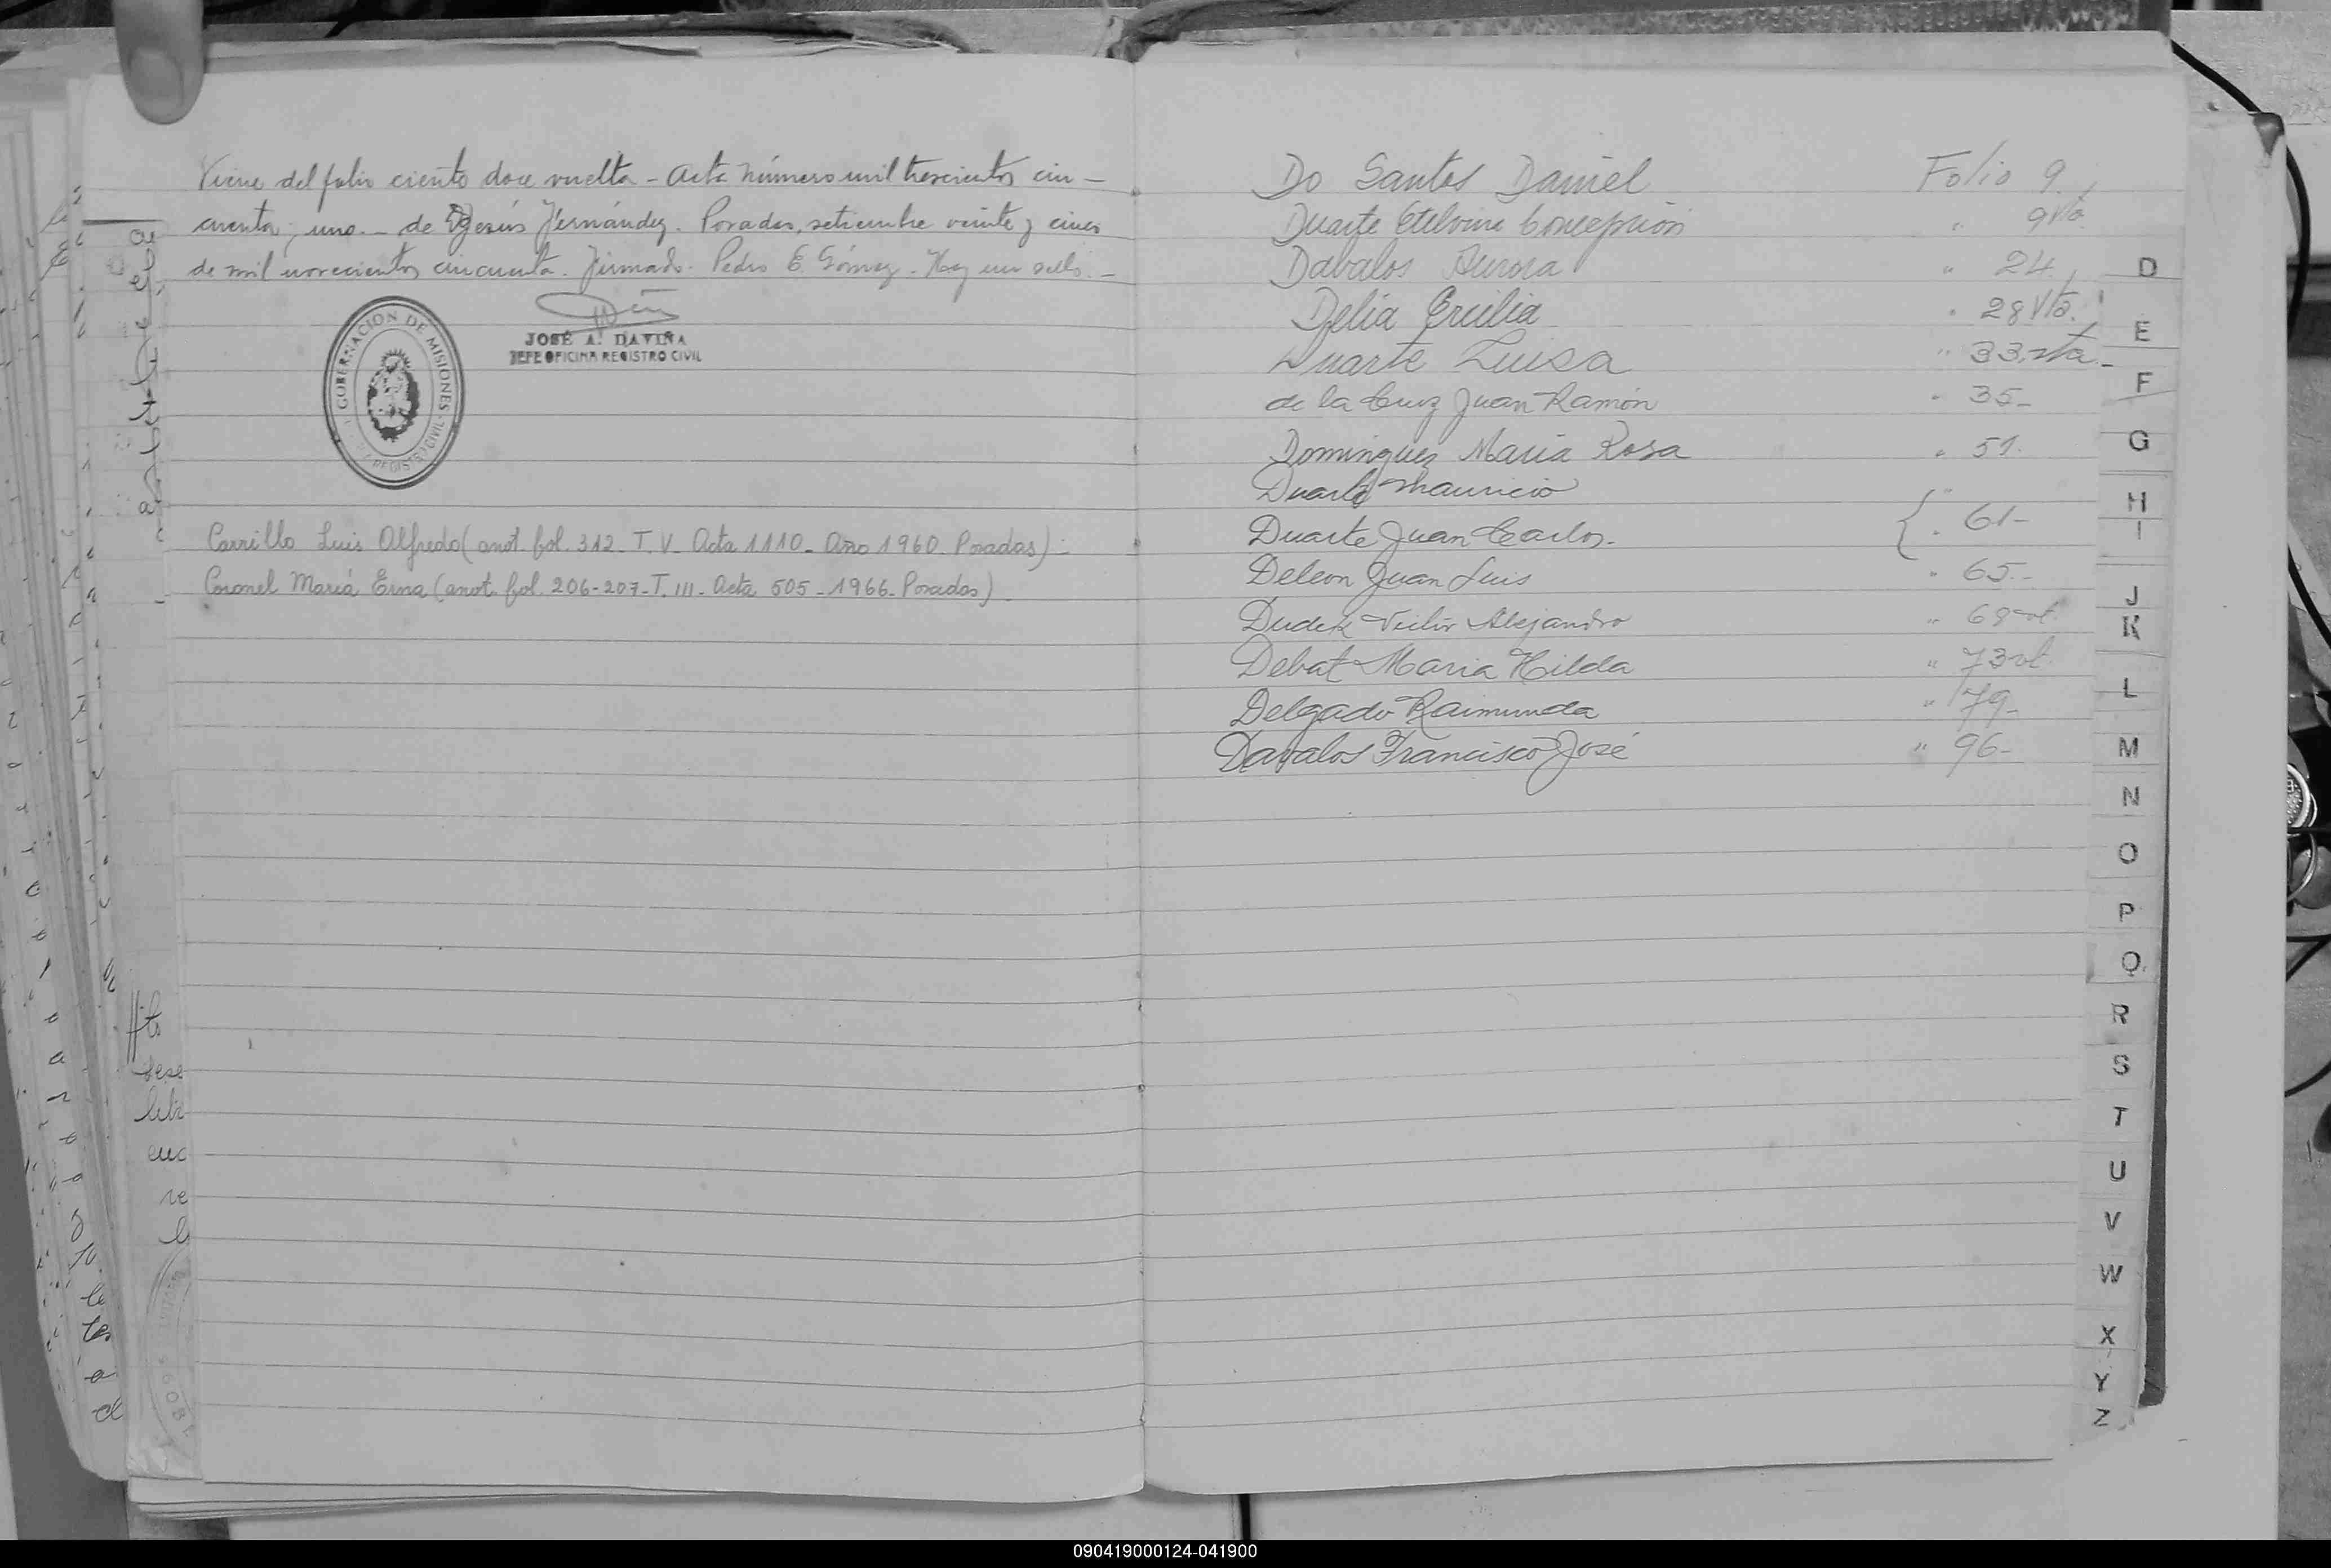 Viene del folio ciento doce vuelta - Acta número mil trescientos cin-
cuenta y uno. - de Jesús Fernández. Posadas, setiembre veinte y cinco
de mil novecientos cincuenta. Firmado. Pedro E. Gómez. Hay un sello. -
JOSÉ A. DAVIÑA
JEFE OFICINA REGISTRO CIVIL
GOBERNACION DE MISIONES
REGISTRO CIVIL
Carrillo Luis Alfredo (anot. fol. 312 - T. V - Acta 1110 - Año 1960 Posadas) -
Coronel María Erna (anot. fol. 206-207 - T. III - Acta 505 - 1966 - Posadas) -
Do Santos Daniel Folio 9.
Duarte Etelvina Concepción " 9 Vta.
Dabalos Aurora " 24.
Delia Ercilia " 28 Vta.
Duarte Luisa " 33 vta -
de la Cruz Juan Ramón " 35 -
Dominguez Maria Rosa " 51.
Duarte Mauricio "
Duarte Juan Carlos. " 61 -
Deleon Juan Luis " 65 -
Dudek Victor Alejandro " 68 vt.
Debat Maria Hilda " 73 vt
Delgado Raimunda " 79 -
Davalos Francisco José " 96 -
D
E
F
G
H
I
J
K
L
M
N
O
P
Q
R
S
T
U
V
W
X
Y
Z
090419000124-041900